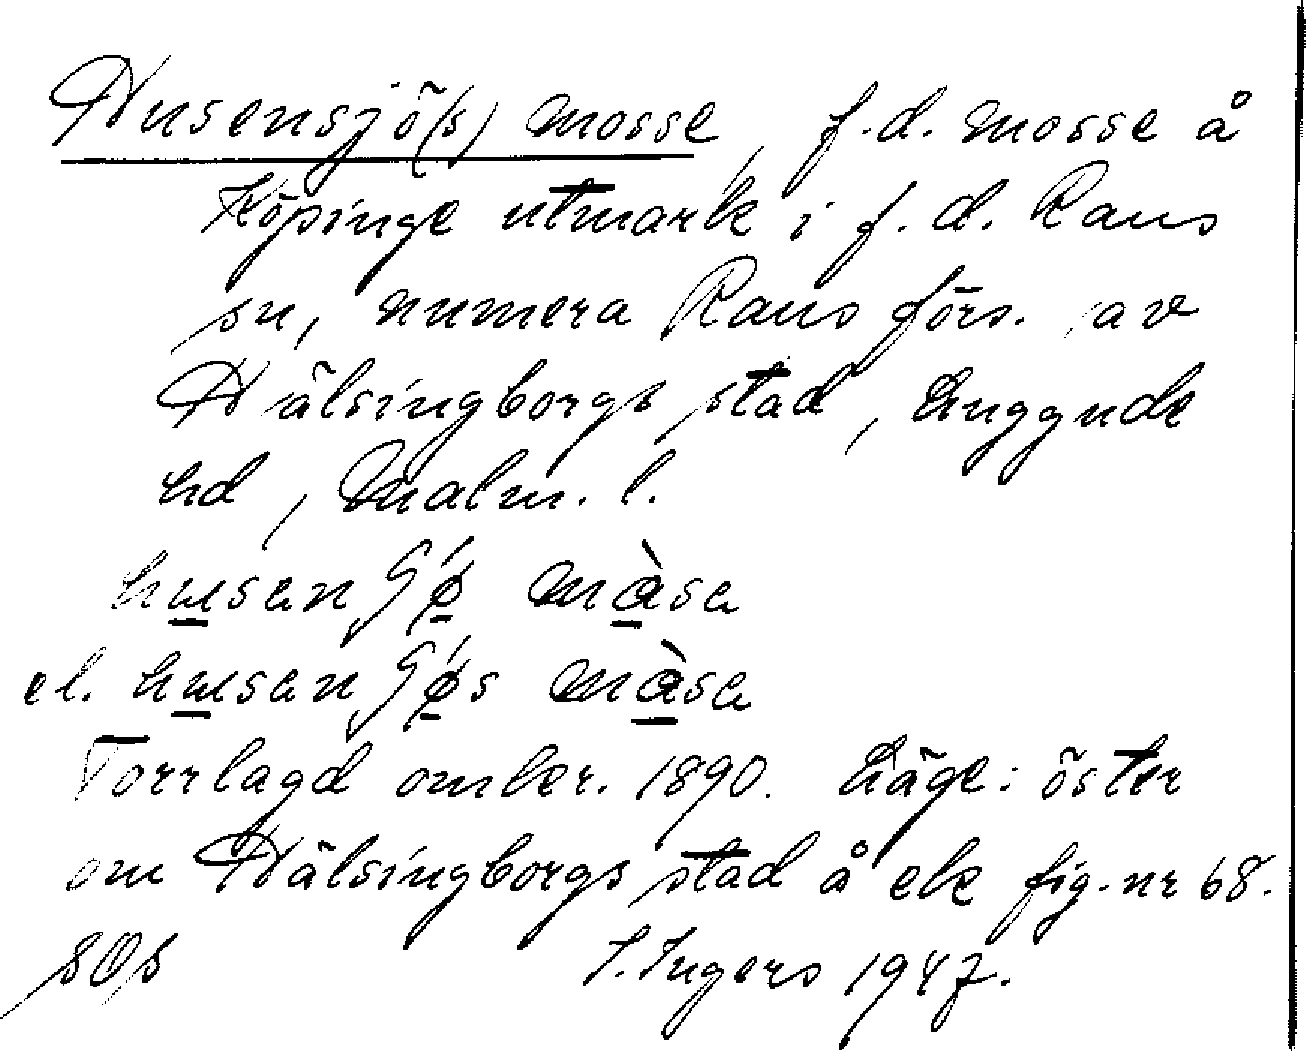 Husensjö(s) mosse, f.d. mosse å
Köpinge utmark i f.d. Raus
sn, numera Raus förs. av
Hälsingborgs stad, Luggude
hd, Malm. l.
el.
Torrlagd omkr. 1890. Läge: öster
om Hälsingborgs stad å ek fig. nr 68.
I. Ingers 1947.